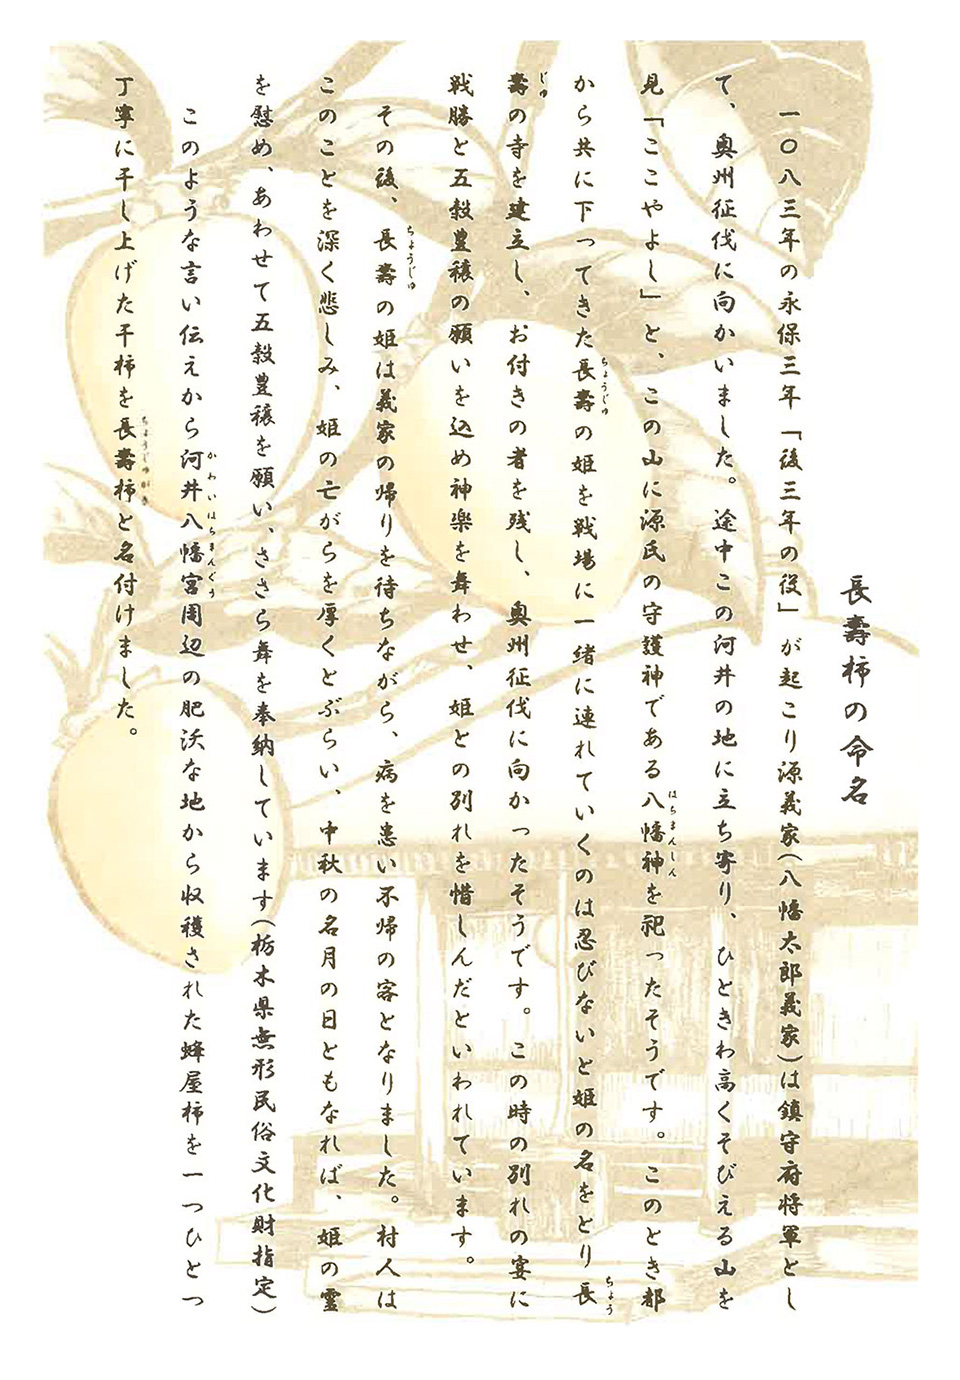 長壽柿の命名
一〇八三年の永保三年「後三年の役」が起こり源義家(八幡太郎義家)は鎮守府将軍とし
て、奥州征伐に向かいました。途中この河井の地に立ち寄り、ひときわ高くそびえる山を
見「ここやよし」と、この山に源氏の守護神である八幡神を祀ったそうです。このとき都
はちまんしん
から共に下ってきた長壽の姫を戦場に一緒に連れていくのは忍びないと姫の名をとり長
ちょうじゅ
ちょう
壽の寺を建立し、お付きの者を残し、奥州征伐に向かったそうです。この時の別れの宴に
じゅ
戦勝と五穀豊穣の願いを込め神楽を舞わせ、姫との別れを惜しんだといわれています。
その後、長壽の姫は義家の帰りを待ちながら、病を患い不帰の客となりました。村人は
ちょうじゅ
このことを深く悲しみ、姫の亡がらを厚くとぶらい、中秋の名月の日ともなれば、姫の霊
を慰め、あわせて五穀豊穣を願い、ささら舞を奉納しています(栃木県無形民俗文化財指定)
このような言い伝えから河井八幡宮周辺の肥沃な地から収穫された蜂屋柿を一つひとつ
かわいはちまんぐう
丁寧に干し上げた干柿を長壽柿と名付けました。
ちょうじゅがき